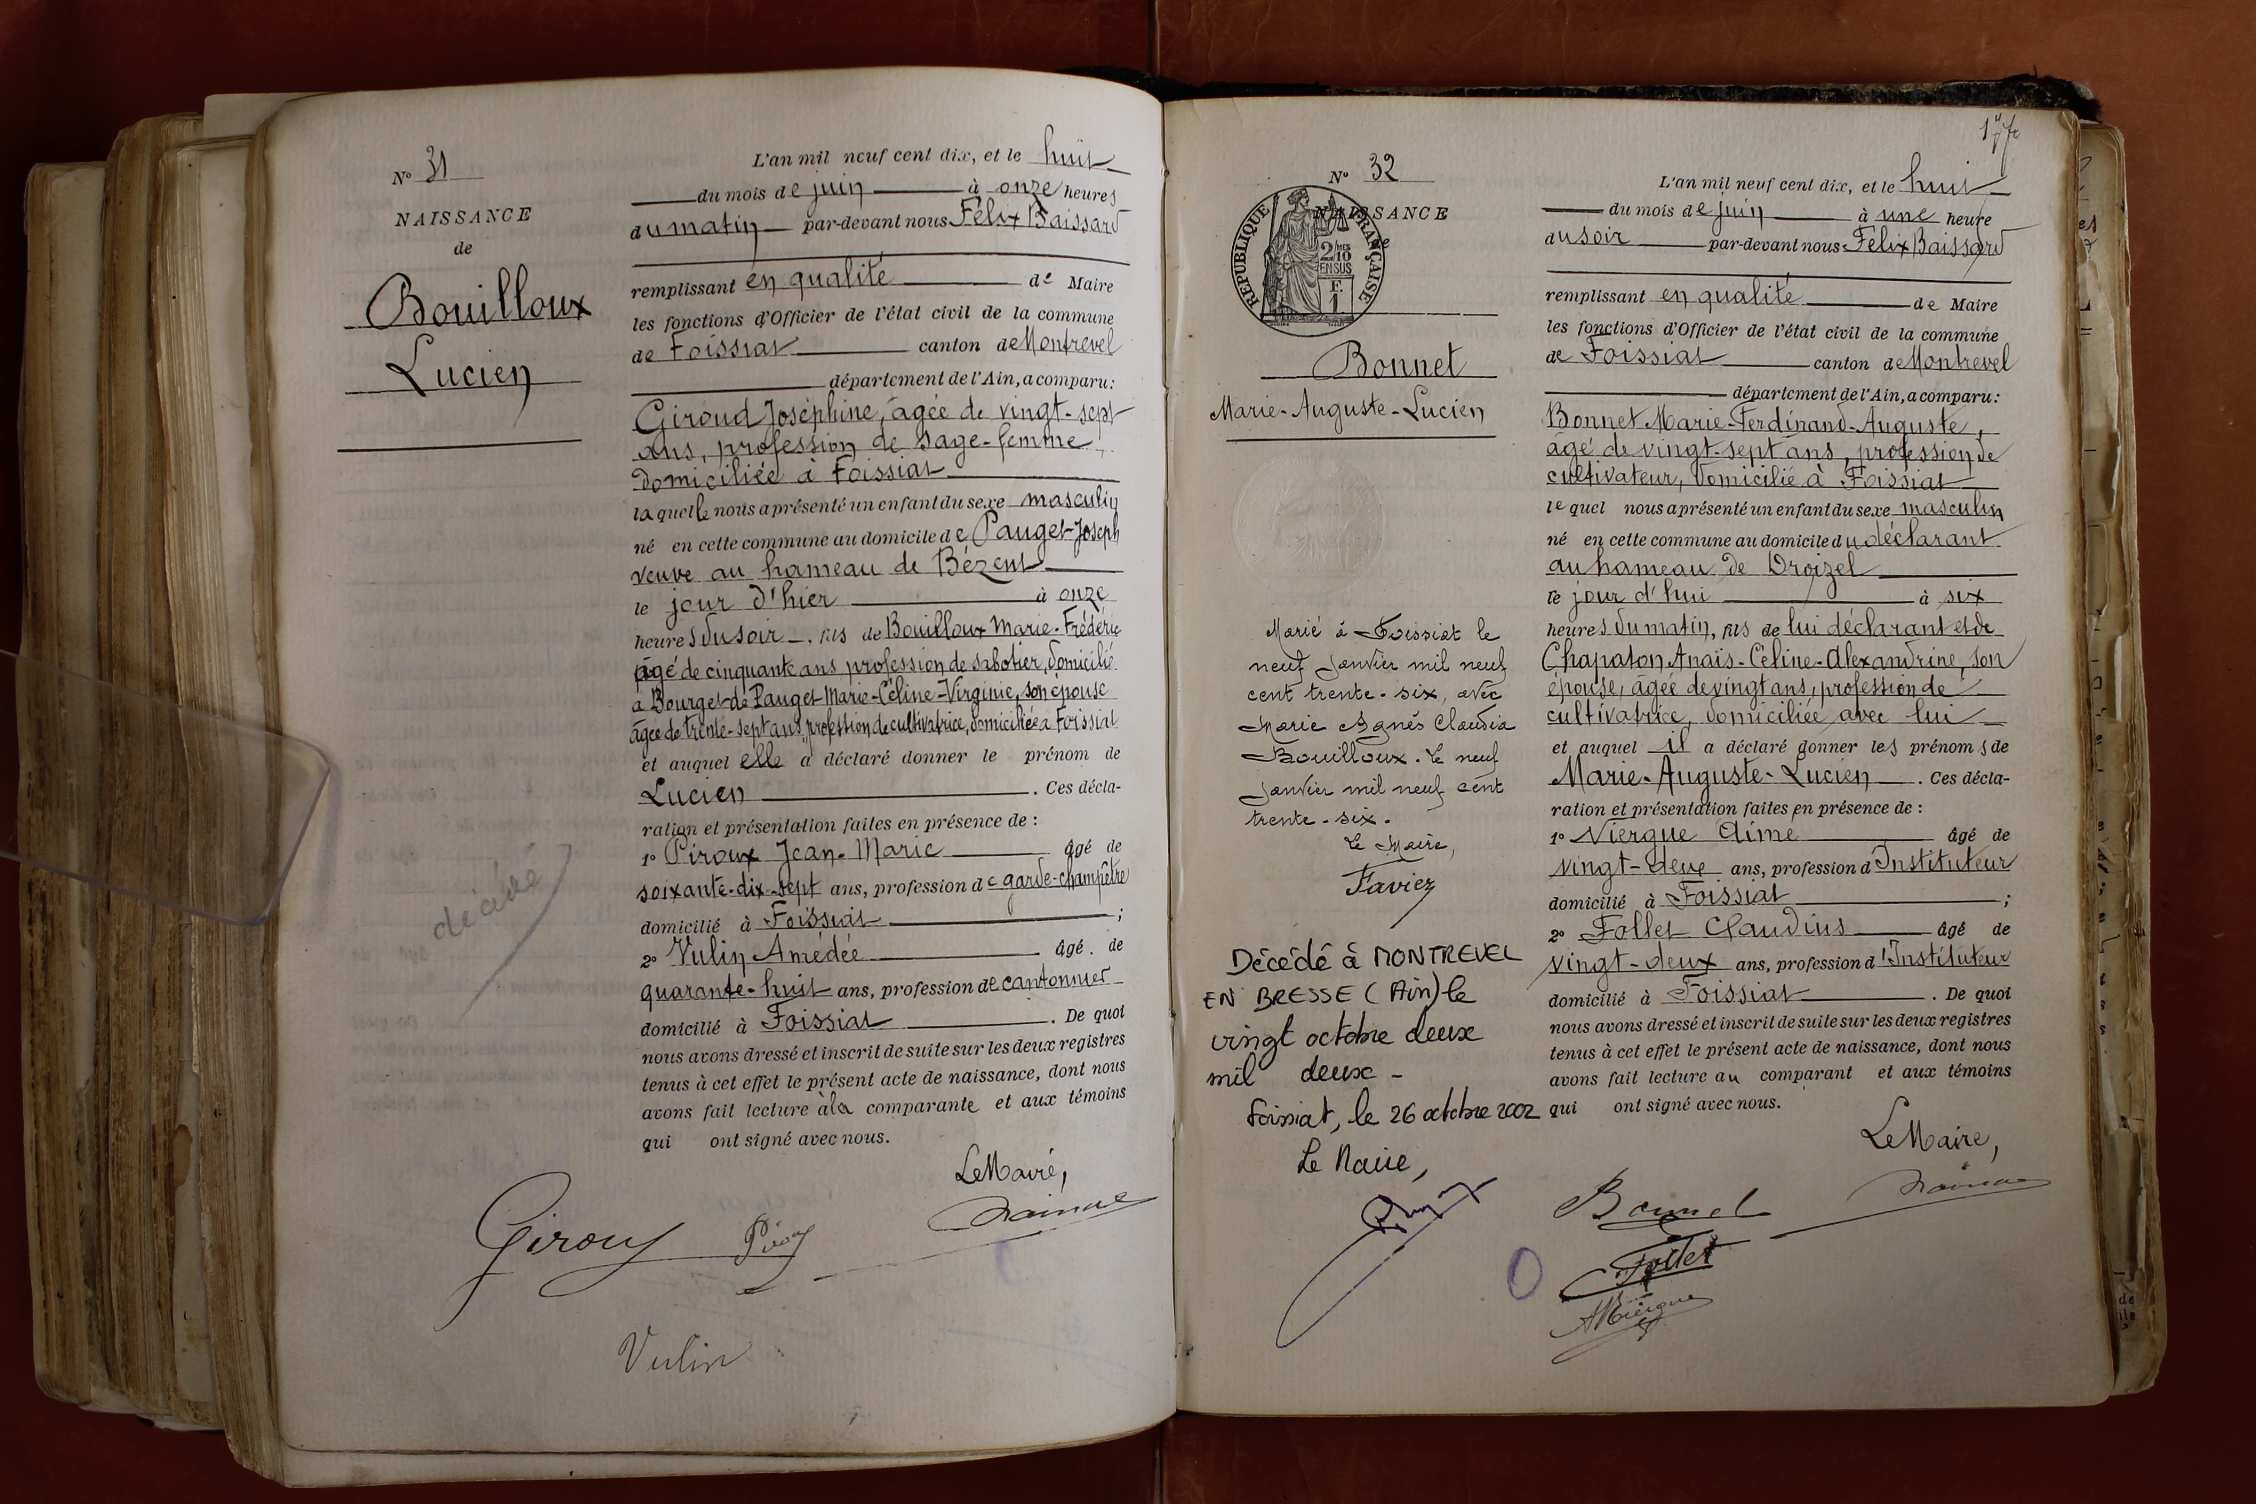 N° 31
NAISSANCE
de
Bouilloux
Lucien
décédé
L'an mil neuf cent dix, et le huit
du mois de juin à onze heures
du matin par-devant nous Félix Baissard
remplissant en qualité de Maire
les fonctions d'Officier de l'état civil de la commune
de Foissiat canton de Montrevel
département de l'Ain, a comparu:
Giroud Joséphine, âgée de vingt-sept
ans, profession de sage-femme
domiciliée à Foissiat
laquelle nous a présenté un enfant du sexe masculin
né en cette commune au domicile de Pauget Joseph
veuve au hameau de Bézent
le jour d'hier à onze
heures du soir, fils de Bouilloux Marie-Frédéric
âgé de cinquante ans profession de sabotier, domicilié
à Bourget de Pauget Marie-Céline-Virginie, son épouse
âgée de trente-sept ans, profession de cultivatrice, domiciliée à Foissiat
et auquel elle a déclaré donner le prénom de
Lucien . Ces décla-
ration et présentation faites en présence de :
1° Piroux Jean-Marie âgé de
soixante-dix-sept ans, profession de garde-champêtre
domicilié à Foissiat ;
2° Vulin Amédée âgé de
quarante-huit ans, profession de cantonnier
domicilié à Foissiat . De quoi
nous avons dressé et inscrit de suite sur les deux registres
tenus à cet effet le présent acte de naissance, dont nous
avons fait lecture à la comparante et aux témoins
qui ont signé avec nous.
Le Maire,
Girou
Vulin
N° 32
NAISSANCE
RÉPUBLIQUE FRANÇAISE
2/10
EN SUS
F.
1
Bonnet
Marie-Auguste-Lucien
Marié à Foissiat le
neuf janvier mil neuf
cent trente-six, avec
Marie Agnès Claudia
Bouilloux. Le neuf
janvier mil neuf cent
trente-six.
Le Maire,
Favier
Décédé à MONTREVEL
EN BRESSE (Ain) le
vingt octobre deux
mil deux -
Foissiat, le 26 octobre 2002
Le Maire,
L'an mil neuf cent dix, et le huit
du mois de juin à une heure
du soir par-devant nous Félix Baissard
remplissant en qualité de Maire
les fonctions d'Officier de l'état civil de la commune
de Foissiat canton de Montrevel
département de l'Ain, a comparu:
Bonnet Marie-Ferdinand-Auguste,
âgé de vingt-sept ans, profession de
cultivateur, domicilié à Foissiat
lequel nous a présenté un enfant du sexe masculin
né en cette commune au domicile du déclarant
au hameau de Droizel
le jour d'hui à six
heures du matin, fils de lui déclarant et de
Chapaton Anaïs-Céline-Alexandrine, son
épouse, âgée de vingt ans, profession de
cultivatrice, domiciliée avec lui
et auquel il a déclaré donner les prénoms de
Marie-Auguste-Lucien . Ces décla-
ration et présentation faites en présence de :
1° Niergue Aimé âgé de
vingt-deux ans, profession d'Instituteur
domicilié à Foissiat ;
2° Follet Claudius âgé de
vingt-deux ans, profession d'Instituteur
domicilié à Foissiat . De quoi
nous avons dressé et inscrit de suite sur les deux registres
tenus à cet effet le présent acte de naissance, dont nous
avons fait lecture au comparant et aux témoins
qui ont signé avec nous.
Le Maire,
Bonnet
Follet